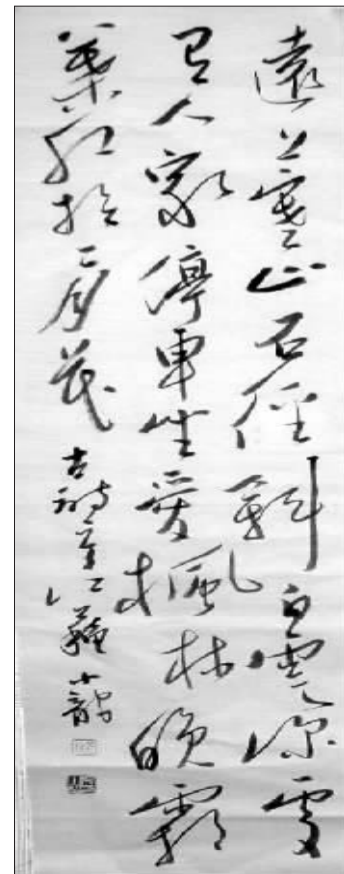 遠上寒山石徑斜白雲深處
有人家停車坐愛楓林晚霜
葉紅於二月花 古詩